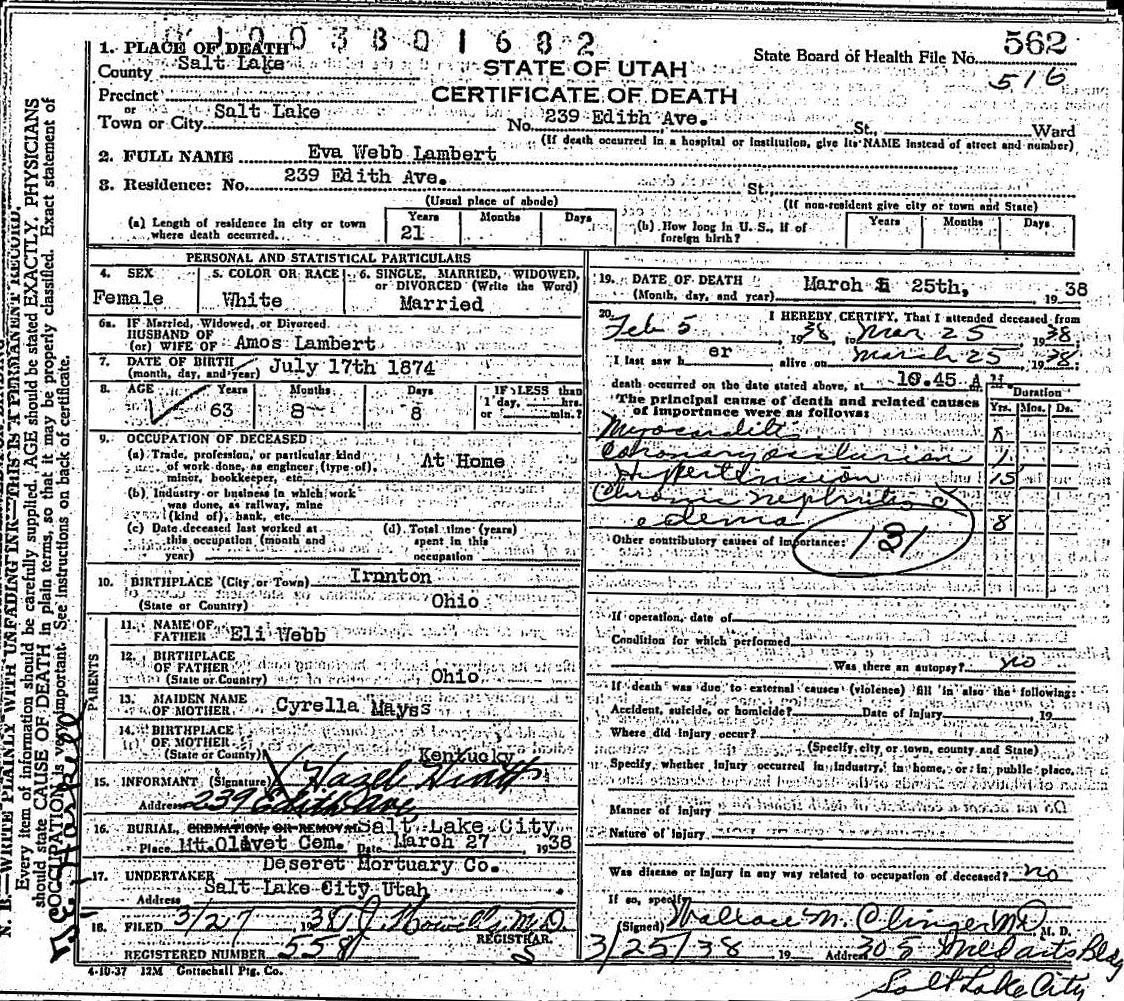 01003801682
562
516
State Board of Health File No.
STATE OF UTAH
CERTIFICATE OF DEATH
1. PLACE OF DEATH
County Salt Lake
Precinct
or
Town or City Salt Lake No. 239 Edith Ave. St., Ward
(If death occurred in a hospital or institution, give its NAME instead of street and number)
2. FULL NAME Eva Webb Lambert
3. Residence: No. 239 Edith Ave. St.
(Usual place of abode) (If non-resident give city or town and State)
(a) Length of residence in city or town where death occurred. Years 21 Months Days
(b) How long in U. S., if of foreign birth? Years Months Days
PERSONAL AND STATISTICAL PARTICULARS
4. SEX Female
5. COLOR OR RACE White
6. SINGLE, MARRIED, WIDOWED, or DIVORCED (Write the Word) Married
6a. IF Married, Widowed, or Divorced
HUSBAND OF
(or) WIFE OF Amos Lambert
7. DATE OF BIRTH (month, day, and year) July 17th 1874
8. AGE Years 63 Months 8 Days 8 IF LESS than 1 day, hrs. or min.?
9. OCCUPATION OF DECEASED
(a) Trade, profession, or particular kind of work done, as engineer (type of), miner, bookkeeper, etc. At Home
(b) Industry or business in which work was done, as railway, mine (kind of), bank, etc.
(c) Date deceased last worked at this occupation (month and year)
(d). Total time (years) spent in this occupation
10. BIRTHPLACE (City or Town) Irnnton
(State or Country) Ohio
PARENTS
11. NAME OF FATHER Eli Webb
12. BIRTHPLACE OF FATHER (State or Country) Ohio
13. MAIDEN NAME OF MOTHER Cyrella Mayss
14. BIRTHPLACE OF MOTHER (State or County) Kentucky
15. INFORMANT (Signature) Hazel Hiatt
Address 239 Edith Ave
16. BURIAL, CREMATION, OR REMOVAL Salt Lake City
Place Mt. Olivet Cem. Date March 27, 1938
17. UNDERTAKER Deseret Mortuary Co.
Address Salt Lake City Utah
18. FILED 3/27 1938 J. Howells M.D.
REGISTRAR.
REGISTERED NUMBER 558
4-10-37 12M Gottschall Ptg. Co.
19. DATE OF DEATH (Month, day, and year) March 25th, 1938
20. I HEREBY CERTIFY, That I attended deceased from
Feb 5, 1938, to Mar 25 1938
I last saw h er alive on March 25, 1938.
death occurred on the date stated above, at 10.45 A M.
The principal cause of death and related causes of importance were as follows:
Duration
Yrs. Mos. Ds.
Myocarditis
Coronary occlusion 1
Hypertension 15
Chronic nephritis c
edema 8
Other contributory causes of importance:
131
If operation, date of
Condition for which performed
Was there an autopsy? no
If death was due to external causes (violence) fill in also the following:
Accident, suicide, or homicide? Date of injury , 19
Where did injury occur?
(Specify city or town, county and State)
Specify whether injury occurred in industry, in home, or in public place.
Manner of injury
Nature of injury
Was disease or injury in any way related to occupation of deceased? no
If so, specify
(Signed) Wallace M. Clinger MD M. D.
3/25/38 19 Address 305 Med arts Bldg
Salt Lake City
N. B.—WRITE PLAINLY WITH UNFADING INK—THIS IS A PERMANENT RECORD.
Every item of information should be carefully supplied. AGE should be stated EXACTLY. PHYSICIANS
should state CAUSE OF DEATH in plain terms, so that it may be properly classified. Exact statement of
OCCUPATION is very important. See instructions on back of certificate.